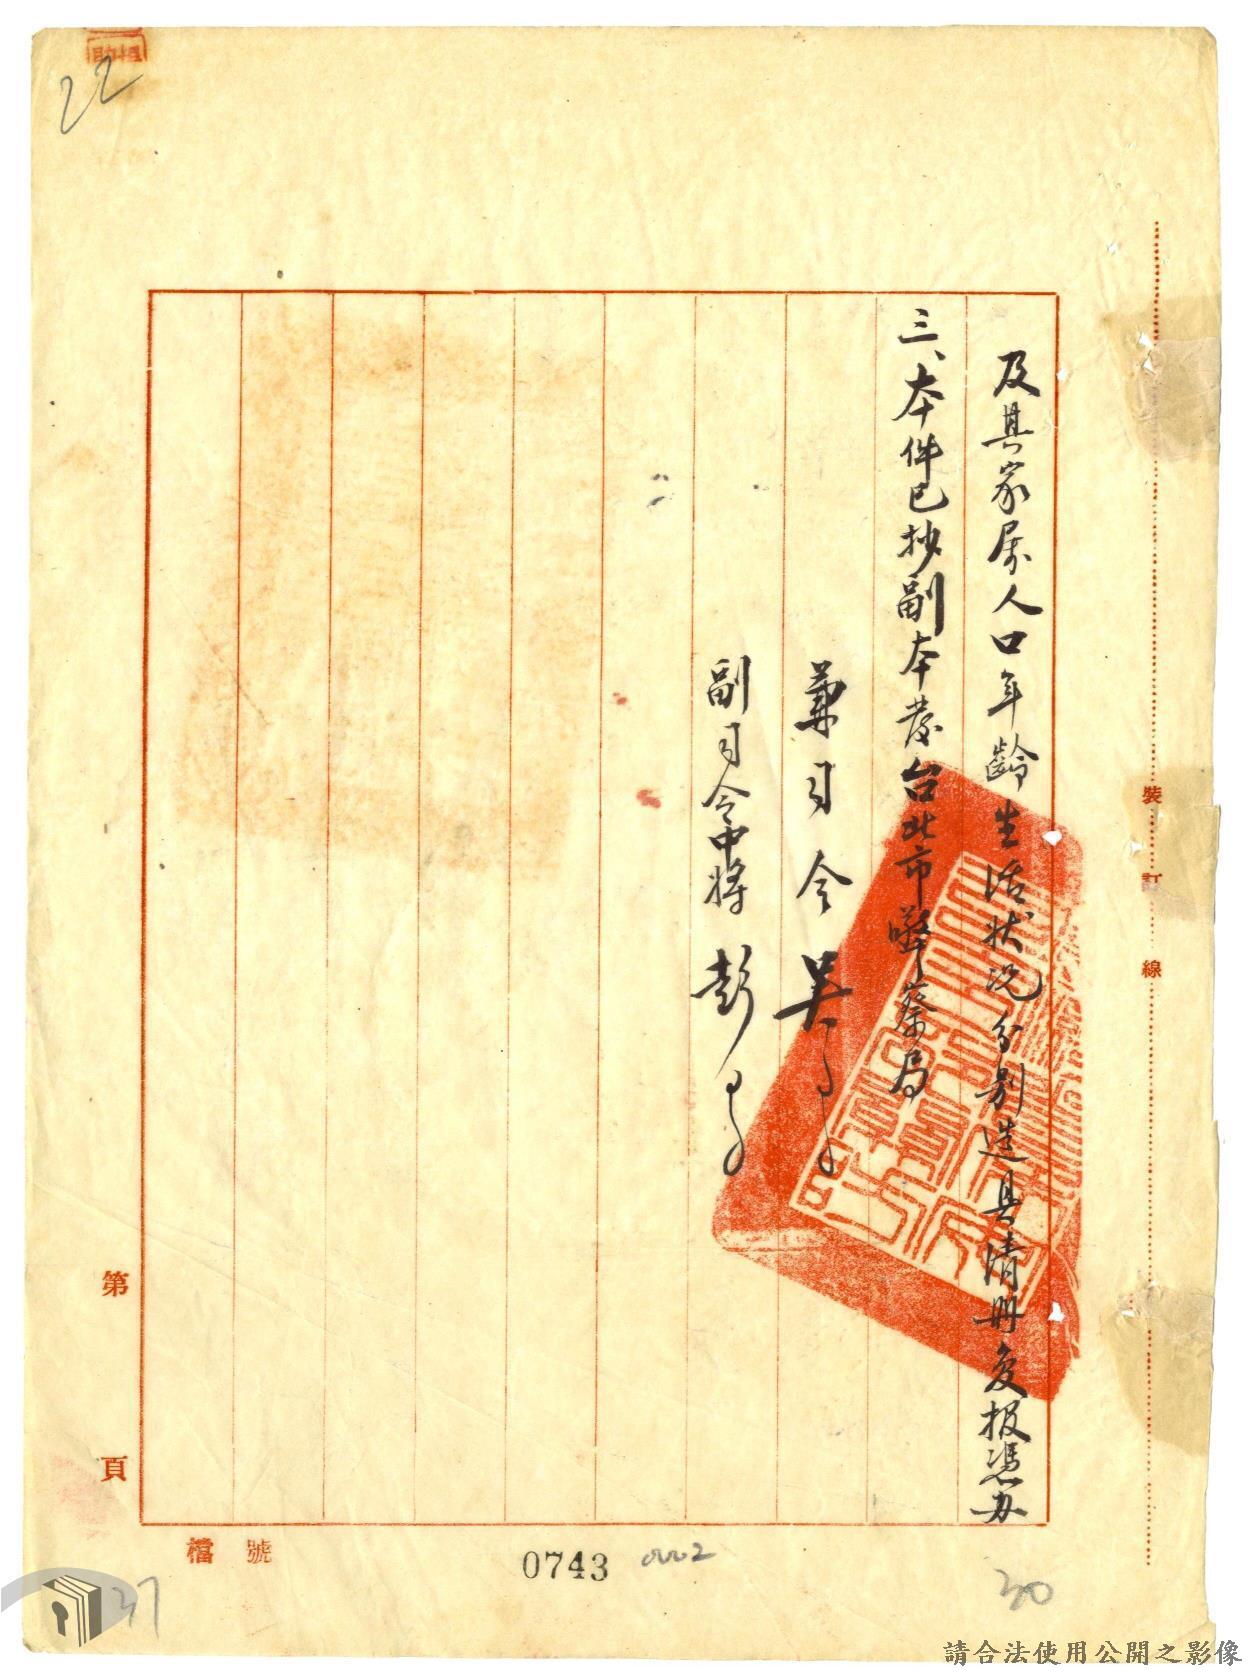 22
及其家属人口年齡生活狀况分别造具清册彙报憑办
三、本件已抄副本發台北市警察局
兼司令 吳
副司令中將 彭
裝 訂 線
第 頁
檔 號
0743
0002
37
30
請合法使用公開之影像